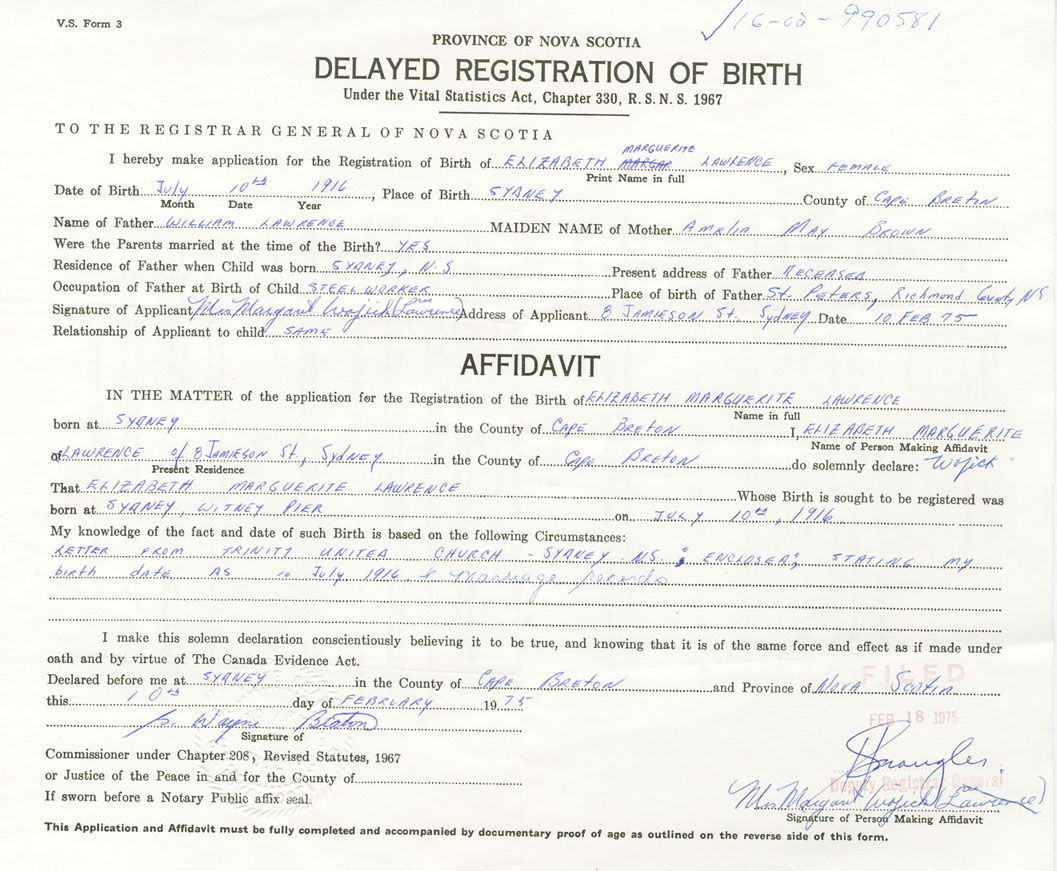 V.S. Form 3
16-02-990581
PROVINCE OF NOVA SCOTIA
DELAYED REGISTRATION OF BIRTH
Under the Vital Statistics Act, Chapter 330, R. S. N. S. 1967
TO THE REGISTRAR GENERAL OF NOVA SCOTIA
MARGUERITE
I hereby make application for the Registration of Birth of ELIZABETH MARGAR LAWRENCE, Sex FEMALE
Print Name in full
Date of Birth July 10th 1916, Place of Birth SYDNEY County of CAPE BRETON
Month Date Year
Name of Father WILLIAM LAWRENCE MAIDEN NAME of Mother AMELIA MAY BROWN
Were the Parents married at the time of the Birth? YES
Residence of Father when Child was born SYDNEY, N.S Present address of Father DECEASED
Occupation of Father at Birth of Child STEELWORKER Place of birth of Father St. PETERS, Richmond County NS
Signature of Applicant Mrs Margaret Wojick (née Lawrence) Address of Applicant 8 JAMIESON St. Sydney Date 10 FEB 75
Relationship of Applicant to child SAME
AFFIDAVIT
IN THE MATTER of the application for the Registration of the Birth of ELIZABETH MARGUERITE LAWRENCE
Name in full
born at SYDNEY in the County of CAPE BRETON I, ELIZABETH MARGUERITE
Name of Person Making Affidavit
of LAWRENCE of 8 JAMIESON St., Sydney in the County of CAPE BRETON do solemnly declare: "Wojick"
Present Residence
That ELIZABETH MARGUERITE LAWRENCE Whose Birth is sought to be registered was
born at SYDNEY, WITNEY PIER on JULY 10th, 1916
My knowledge of the fact and date of such Birth is based on the following Circumstances:
LETTER FROM TRINITY UNITED CHURCH - SYDNEY N.S. ; ENCLOSED; STATING MY
birth date AS 10 July 1916 & marriage records
I make this solemn declaration conscientiously believing it to be true, and knowing that it is of the same force and effect as if made under
oath and by virtue of The Canada Evidence Act.
Declared before me at SYDNEY in the County of CAPE BRETON and Province of NOVA SCOTIA
this 10th day of FEBRUARY 1975
FILED
FEB 18 1975
S. Wayne Beaton
Signature of
Commissioner under Chapter 208, Revised Statutes, 1967
or Justice of the Peace in and for the County of
Deputy Registrar General
If sworn before a Notary Public affix seal.
Mrs Margaret Wojick (née Lawrence)
Signature of Person Making Affidavit
This Application and Affidavit must be fully completed and accompanied by documentary proof of age as outlined on the reverse side of this form.